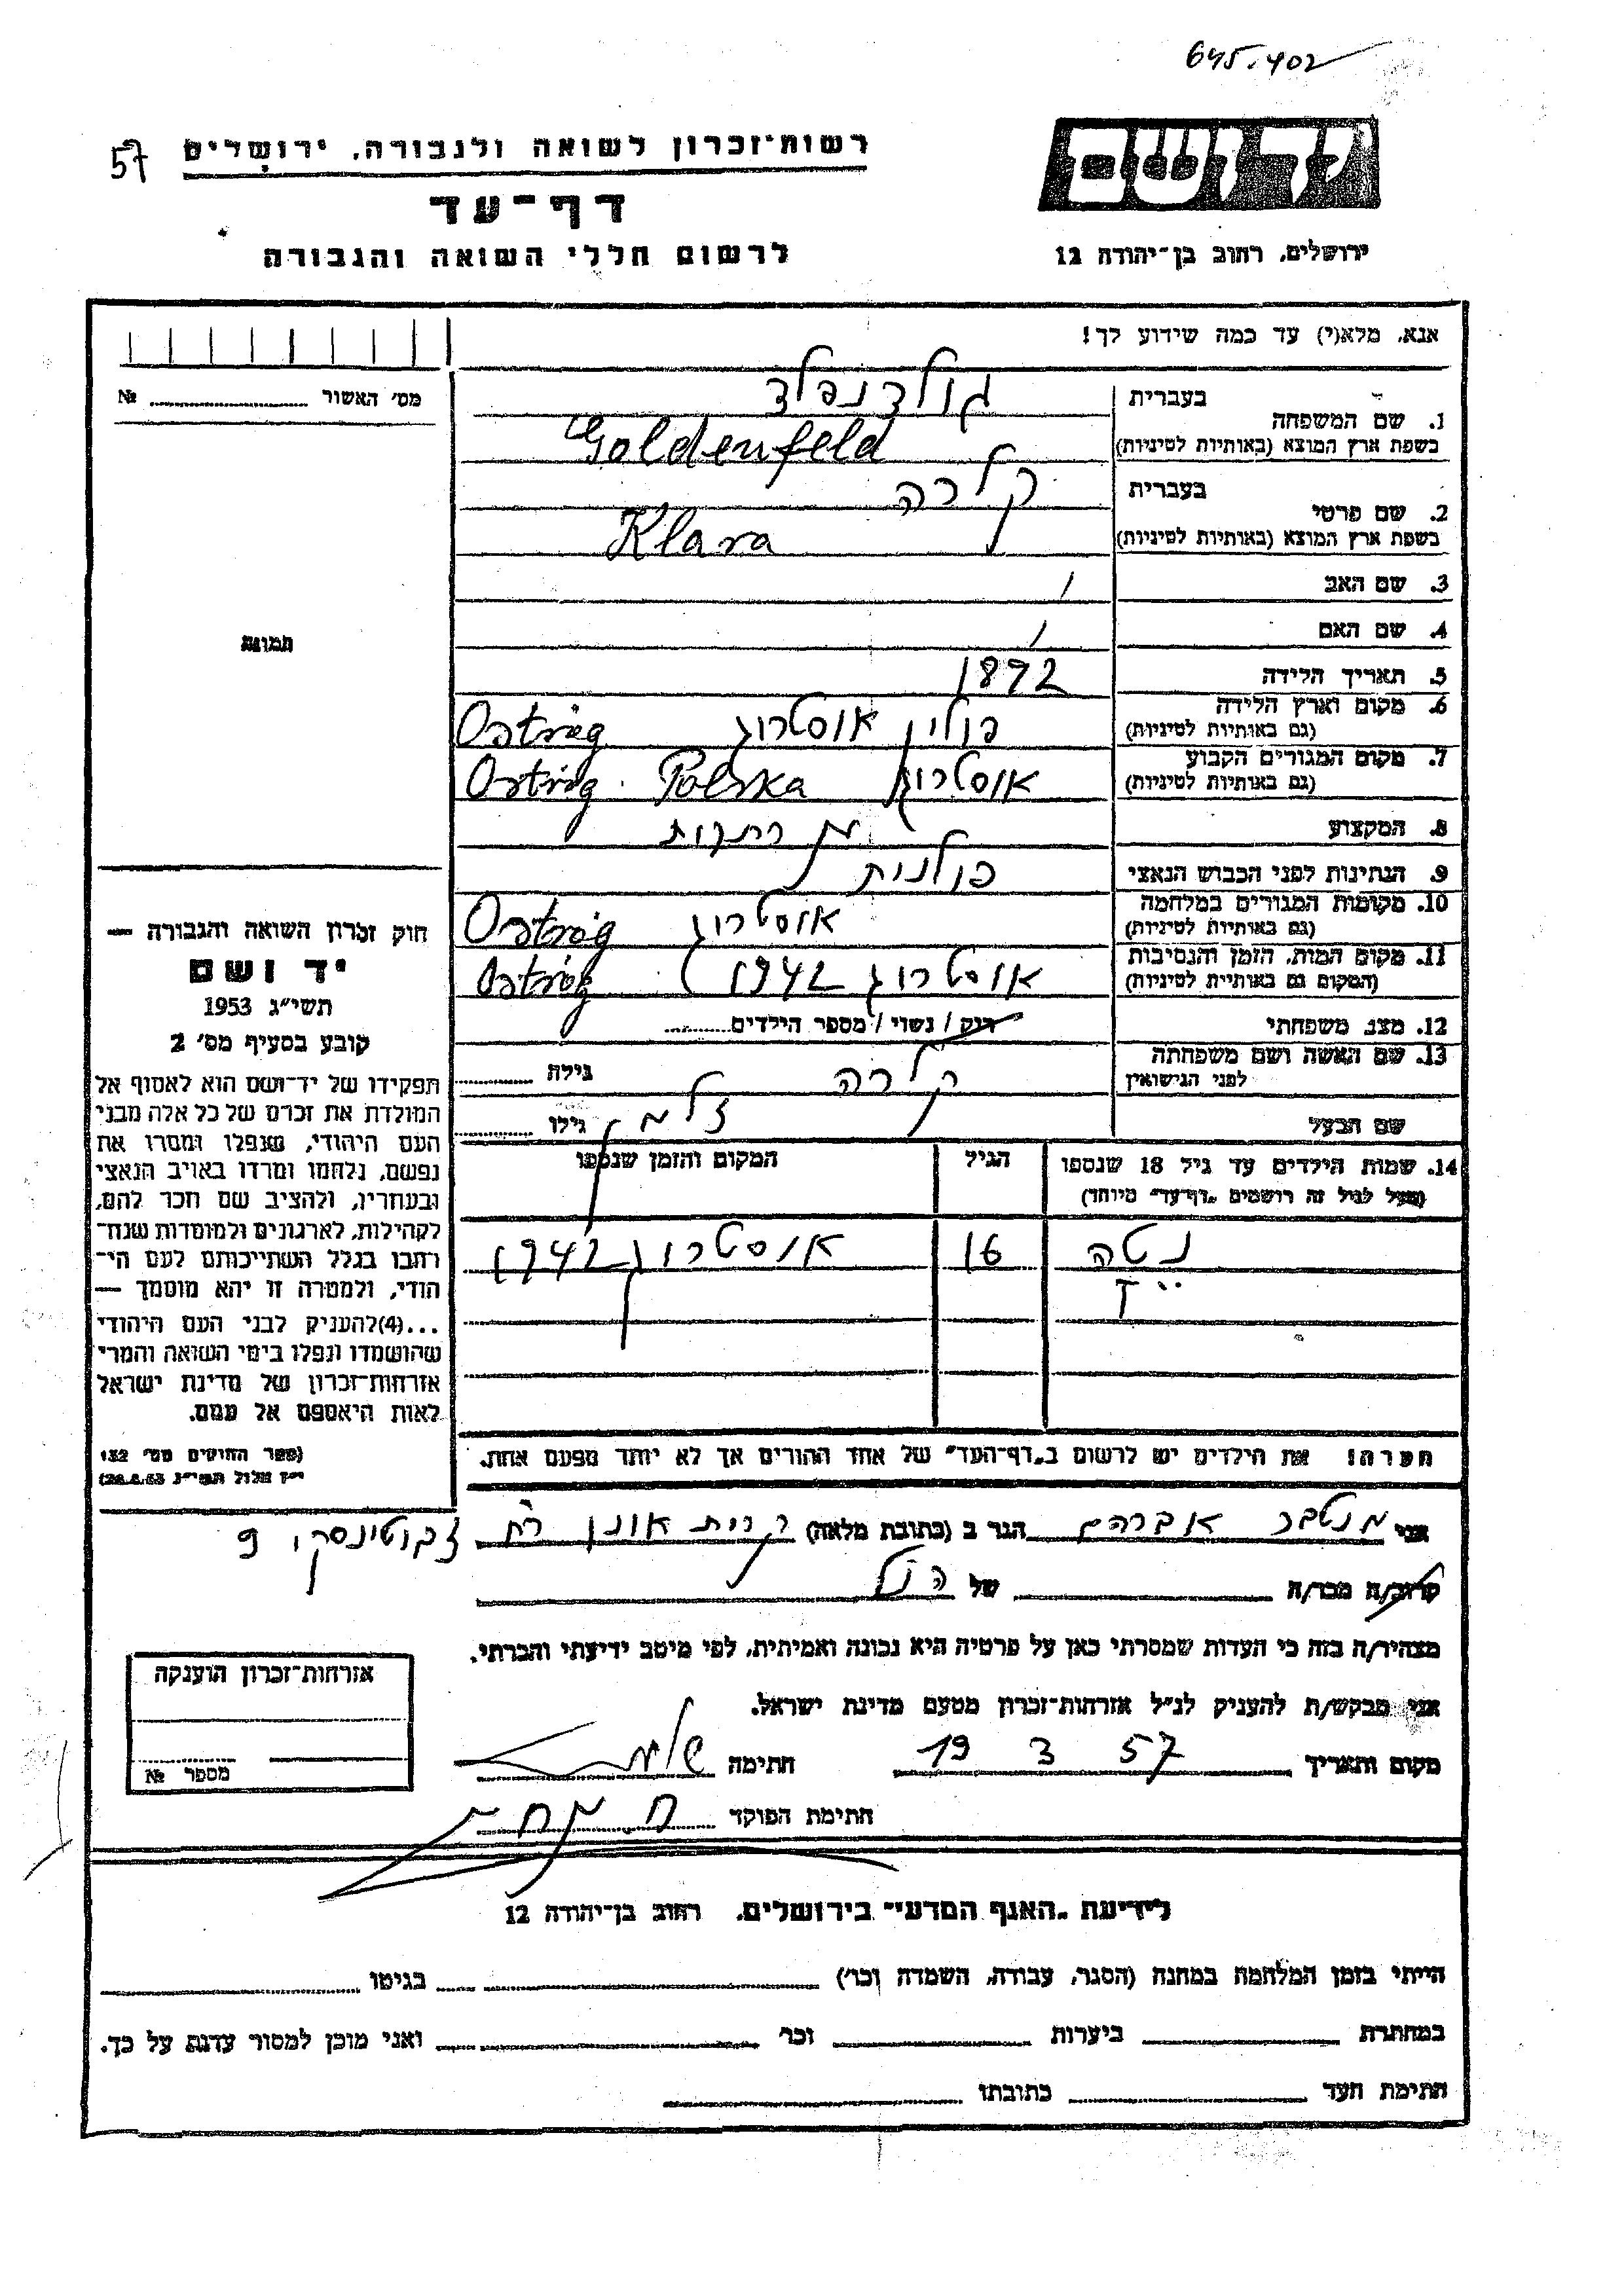 645.402
57
רשות־זכרון לשואה ולגבורה, ירושלים
דף־עד
לרשום חללי השואה והגבורה
יד ושם
ירושלים, רחוב בן־יהודה 12
אנא, מלא(י) עד כמה שידוע לך!
מס׳ האשור № ........
1. שם המשפחה בעברית גולדנפלד
בשפת ארץ המוצא (באותיות לטיניות) Goldenfeld
2. שם פרטי בעברית קלרה
בשפת ארץ המוצא (באותיות לטיניות) Klara
3. שם האב /
4. שם האם /
5. תאריך הלידה 1892
6. מקום וארץ הלידה (גם באותיות לטיניות) פולין אוסטרוג Ostróg
7. מקום המגורים הקבוע (גם באותיות לטיניות) אוסטרוג Ostróg. Polska
8. המקצוע
9. הנתינות לפני הכבוש הנאצי פולנית
10. מקומות המגורים במלחמה (גם באותיות לטיניות) אוסטרוג Ostróg
11. מקום המות, הזמן והנסיבות (המקום גם באותיית לטיניות) אוסטרוג 1942 Ostróg
12. מצב משפחתי רוק / נשוי / מספר הילדים........
13. שם האשה ושם משפחתה לפני הנישואין קלרה גילה ........
שם הבעל זלמן גילו ........
14. שמות הילדים עד גיל 18 שנספו
(מעל לגיל זה רושמים „דף־עד" מיוחד)
הגיל
המקום והזמן שנספו
נטה 16 אוסטרוג 1942
הערה: את הילדים יש לרשום ב„דף־העד" של אחד ההורים אך לא יותר מפעם אחת.
תמונה
חוק זכרון השואה והגבורה —
יד ושם
תשי״ג 1953
קובע בסעיף מס׳ 2
תפקידו של יד־ושם הוא לאסוף אל
המולדת את זכרם של כל אלה מבני
העם היהודי, שנפלו ומסרו את
נפשם, נלחמו ומרדו באויב הנאצי
ובעוזריו, ולהציב שם וזכר להם,
לקהילות, לארגונים ולמוסדות שנח־
רבו בגלל השתייכותם לעם הי־
הודי, ולמטרה זו יהא מוסמך —
...(4)להעניק לבני העם היהודי
שהושמדו ונפלו בימי השואה והמרי
אזרחות־זכרון של מדינת ישראל
לאות היאספם אל עמם.
(ספר החוקים מס׳ 132
י״ז אלול תשי״ג 28.8.53)
אני אברהם הגר ב (כתובת מלאה) קרית אונו רח ז׳בוטינסקי 9
קרוב/ה מכר/ה של הנ״ל
מצהיר/ה בזה כי העדות שמסרתי כאן על פרטיה היא נכונה ואמיתית, לפי מיטב ידיעתי והכרתי.
אני מבקש/ת להעניק לנ״ל אזרחות־זכרון מטעם מדינת ישראל.
מקום ותאריך 19 3 57 חתימה
חתימת הפוקד
אזרחות־זכרון הוענקה
מספר №
לידיעת „האגף המדעי" בירושלים, רחוב בן־יהודה 12
הייתי בזמן המלחמה במחנה (הסגר, עבודה, השמדה וכו׳) בגיטו
במחתרת ביערות וכו׳ ואני מוכן למסור עדות על כך.
חתימת העד כתובתו